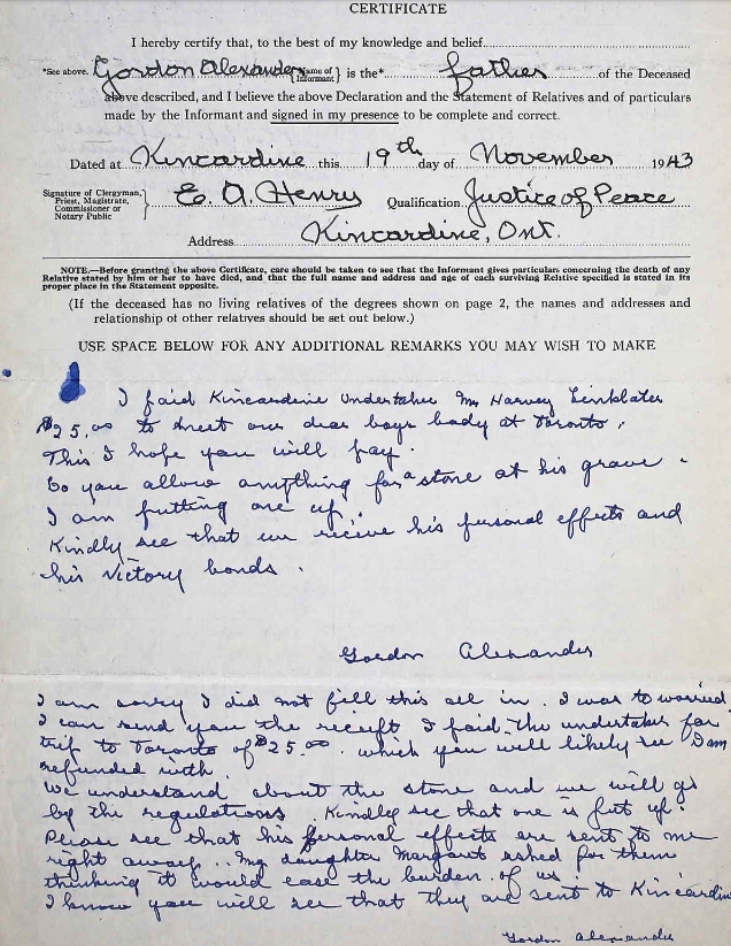 CERTIFICATE
I hereby certify that, to the best of my knowledge and belief
*See above. Gordon Alexander {Name of Informant} is the* father of the Deceased
above described, and I believe the above Declaration and the Statement of Relatives and of particulars
made by the Informant and signed in my presence to be complete and correct.
Dated at Kincardine this 19th day of November 1943
Signature of Clergyman, Priest, Magistrate, Commissioner or Notary Public } E. A. Henry Qualification Justice of Peace
Address Kincardine, Ont.
NOTE.—Before granting the above Certificate, care should be taken to see that the Informant gives particulars concerning the death of any
Relative stated by him or her to have died, and that the full name and address and age of each surviving Relative specified is stated in its
proper place in the Statement opposite.
(If the deceased has no living relatives of the degrees shown on page 2, the names and addresses and
relationship of other relatives should be set out below.)
USE SPACE BELOW FOR ANY ADDITIONAL REMARKS YOU MAY WISH TO MAKE
I paid Kincardine Undertaker Mr Harvey Linklater
$25.00 to meet our dear boys body at Toronto.
This I hope you will pay.
Do you allow anything for a stone at his grave.
I am putting one up.
Kindly see that we receive his personal effects and
his Victory bonds.
Gordon Alexander
I am sorry I did not fill this all in. I was to worried.
I can send you the receipt I paid the undertaker for
trip to Toronto of $25.00. which you will likely see I am
refunded with.
We understand about the stone and we will go
by the regulations. Kindly see that one is put up.
Please see that his personal effects are sent to me
right away.. My daughter Margaret asked for them
thinking it would ease the burden of us.
I know you will see that they are sent to Kincardine
Gordon Alexander